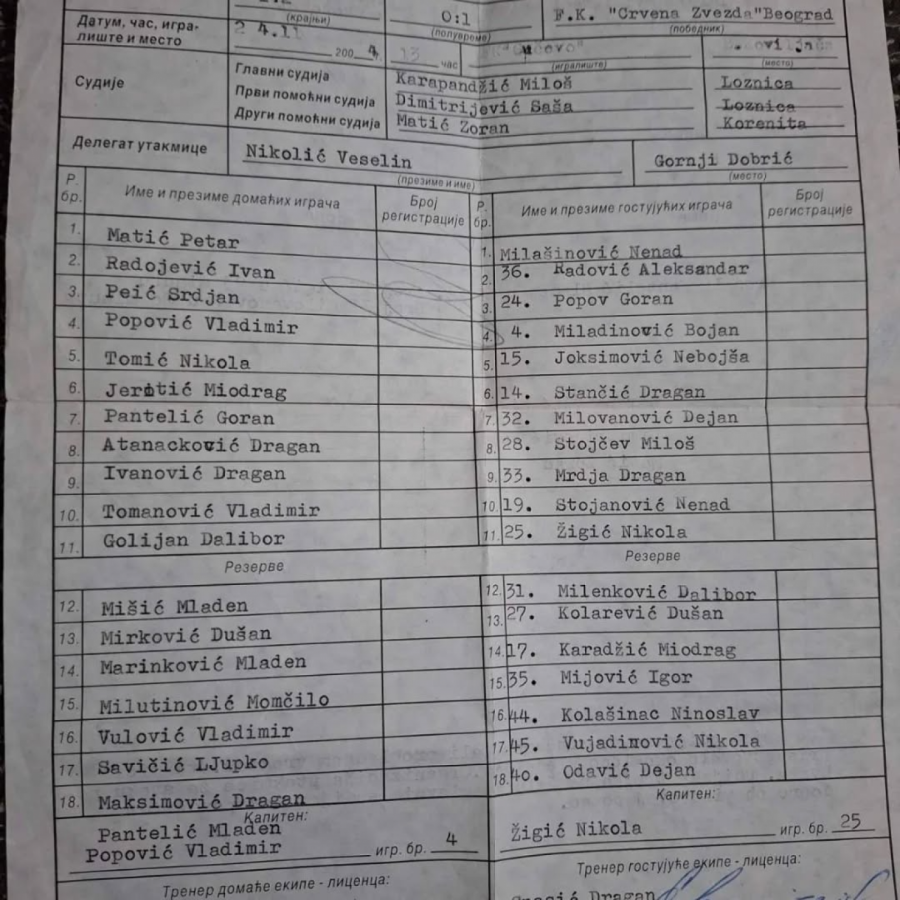 (крајњи) 0:1 (полувреме) F.K. "Crvena Zvezda"Beograd (победник)
Датум, час, игра-
лиште и место 24.11 200 4 13 час (игралиште) (место)
Судије Главни судија Karapandžić Miloš Loznica
Први помоћни судија Dimitrijević Saša Loznica
Други помоћни судија Matić Zoran Korenita
Делегат утакмице Nikolić Veselin (презиме и име) Gornji Dobrić (место)
Р. бр. Име и презиме домаћих играча Број регистрације Р. бр. Име и презиме гостујућих играча Број регистрације
1. Matić Petar 1. Milašinović Nenad
2. Radojević Ivan 2. 36. Radović Aleksandar
3. Peić Srdjan 3. 24. Popov Goran
4. Popović Vladimir 4. 4. Miladinović Bojan
5. Tomić Nikola 5. 15. Joksimović Nebojša
6. Jermtić Miodrag 6. 14. Stančić Dragan
7. Pantelić Goran 7. 32. Milovanović Dejan
8. Atanacković Dragan 8. 28. Stojčev Miloš
9. Ivanović Dragan 9. 33. Mrdja Dragan
10. Tomanović Vladimir 10. 19. Stojanović Nenad
11. Golijan Dalibor 11. 25. Žigić Nikola
Резерве Резерве
12. Mišić Mladen 12. 31. Milenković Dalibor
13. Mirković Dušan 13. 27. Kolarević Dušan
14. Marinković Mladen 14. 17. Karadžić Miodrag
15. Milutinović Momčilo 15. 35. Mijović Igor
16. Vulović Vladimir 16. 44. Kolašinac Ninoslav
17. Savičić LJupko 17. 45. Vujadinović Nikola
18. Maksimović Dragan 18. 40. Odavić Dejan
Капитен: Капитен:
Pantelić Mladen
Popović Vladimir игр. бр. 4 Žigić Nikola игр. бр. 25
Тренер домаће екипе - лиценца: Тренер гостујуће екипе - лиценца:
Dragan